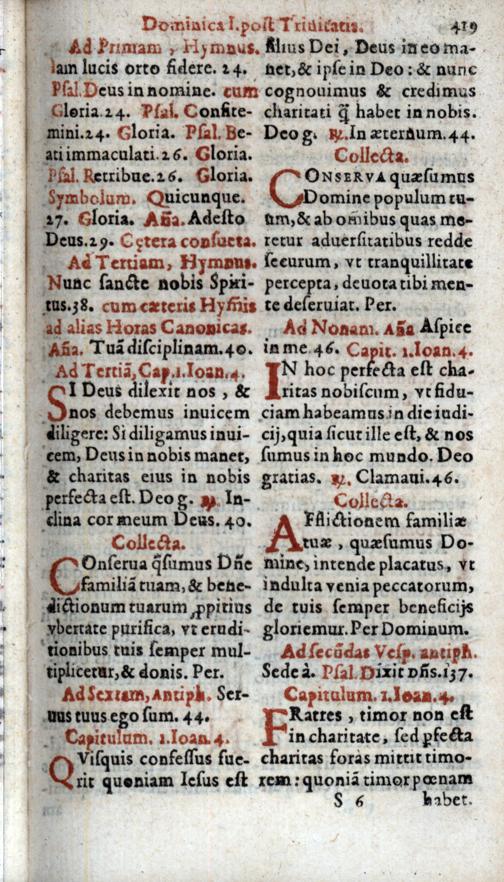 Dominica I. post Trinitatis. 419
Ad Primam, Hymnus.
Iam lucis orto sidere. 24.
Psal. Deus in nomine. cum
Gloria 24. Psal. Confite-
mini. 24. Gloria. Psal. Be-
ati immaculati. 26. Gloria.
Psal. Retribue. 26. Gloria.
Symbolum. Quicunque.
27. Gloria. Añа. Adesto
Deus. 29. Cętera consueta.
Ad Tertiam, Hymnus.
Nunc sancte nobis Spiri-
tus. 38. cum cæteris Hymnis
ad alias Horas Canonicas.
Aña. Tuā disciplinam. 40.
Ad Tertiā, Cap. 1. Ioan. 4.
SI Deus dilexit nos, &
nos debemus inuicem
diligere: Si diligamus inui-
cem, Deus in nobis manet,
& charitas eius in nobis
perfecta est. Deo g. ℟. In-
clina cor meum Deus. 40.
Collecta.
COnserua q̄sumus Dñe
familiā tuam, & bene-
dictionum tuarum ꝓpitius
vbertate purifica, vt erudi-
tionibus tuis semper mul-
tiplicetur, & donis. Per.
Ad Sextam, Antiph. Ser-
uus tuus ego sum. 44.
Capitulum. 1. Ioan. 4.
QVisquis confessus fue-
rit quoniam Iesus est
filius Dei, Deus in eo ma-
net, & ipse in Deo: & nunc
cognouimus & credimus
charitati q̄ habet in nobis.
Deo g. ℟. In æternum. 44.
Collecta.
CONSERVA quæsumus
Domine populum tu-
um, & ab omībus quas me-
retur aduersitatibus redde
securum, vt tranquillitate
percepta, deuota tibi men-
te deseruiat. Per.
Ad Nonam. Aña Aspice
in me 46. Capit. 1. Ioan. 4.
IN hoc perfecta est cha-
ritas nobiscum, vt fidu-
ciam habeamus in die iudi-
cij, quia sicut ille est, & nos
sumus in hoc mundo. Deo
gratias. ℟. Clamaui. 46.
Collecta.
AFflictionem familiæ
tuæ, quæsumus Do-
mine, intende placatus, vt
indulta venia peccatorum,
de tuis semper beneficijs
gloriemur. Per Dominum.
Ad secūdas Vesp. antiph.
Sede à. Psal. Dixit Dñs. 137.
Capitulum. 1. Ioan. 4.
FRatres, timor non est
in charitate, sed ꝑfecta
charitas foras mittit timo-
rem: quoniā timor pœnam
S 6 habet.